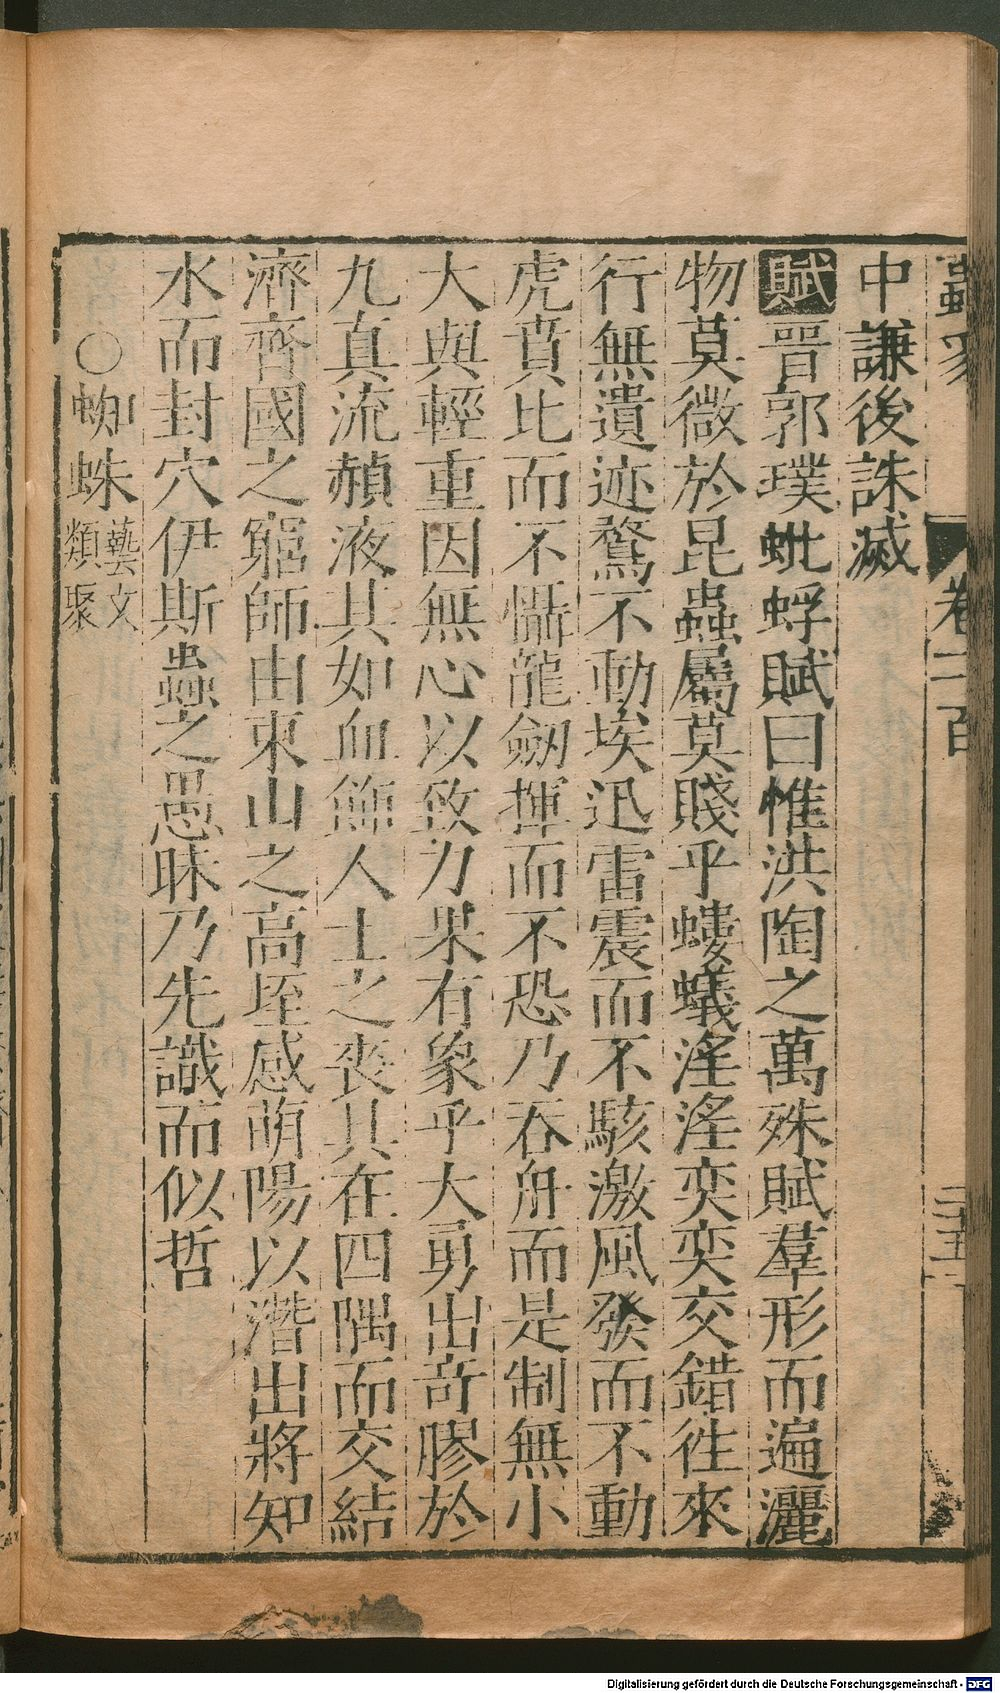 蟲豸 卷一百 三五
中謙後誅滅
賦晉郭璞蚍蜉賦曰惟洪陶之萬殊賦羣形而遍灑
物莫微於昆蟲屬莫賤乎螻蟻淫淫奕奕交錯徃來
行無遺迹騖不動埃迅雷震而不駭激風發而不動
虎賁比而不慴龍劒揮而不恐乃吞舟而是制無小
大與輕重因無心以致力果有象乎大勇出竒膠於
九真流赬液其如血飾人士之喪具在四隅而交結
濟齊國之窮師由東山之高垤感萌陽以潛出將知
水而封穴伊斯蟲之愚昧乃先識而似哲
○蜘蛛藝文類聚
Digitalisierung gefördert durch die Deutsche Forschungsgemeinschaft - DFG